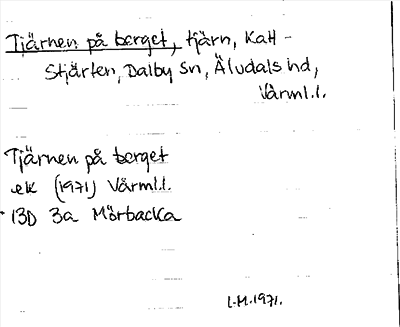 Tjärnen på berget, tjärn, Katt-
Stjärten, Dalby sn, Äludals hd,
Värml.l.
Tjärnen på berget
ek (1971) Värml.l.
13D 3a Mörbacka
L.M.1971.